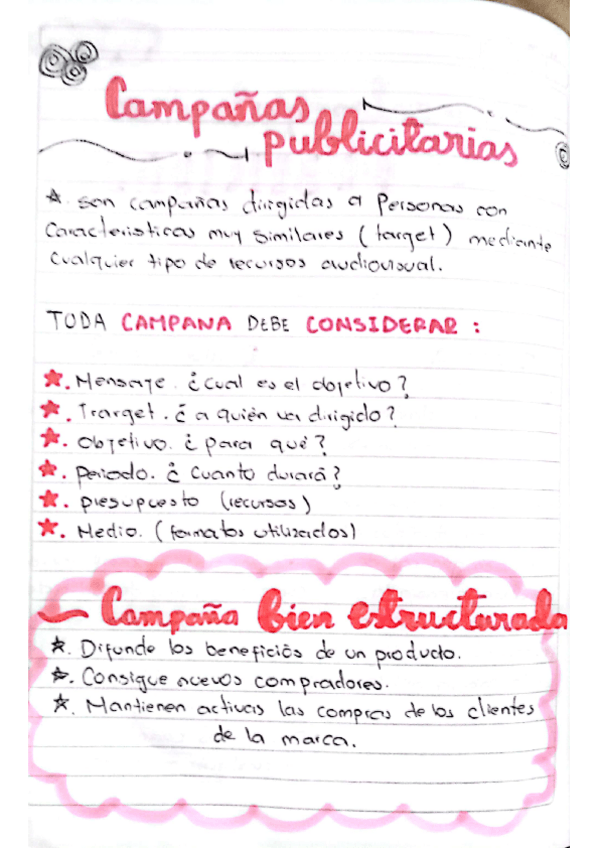 Campañas
publicitarias
son campañas dirigidas a Personas con
Características muy similares (target) mediante
Cualquier tipo de recursos audiovisual.
TODA CAMPANA DEBE CONSIDERAR :
Mensaje. ¿Cual es el objetivo?
Trarget. ¿a quién va dirigido?
Objetivo. ¿para qué?
periodo. ¿Cuanto durará?
presupuesto (recursos)
Medio. (formatos utilizados)
Campaña bien estructurada
Difunde los beneficiós de un producto.
Consigue nuevos compradores.
Mantienen activas las compras de los clientes
de la marca.